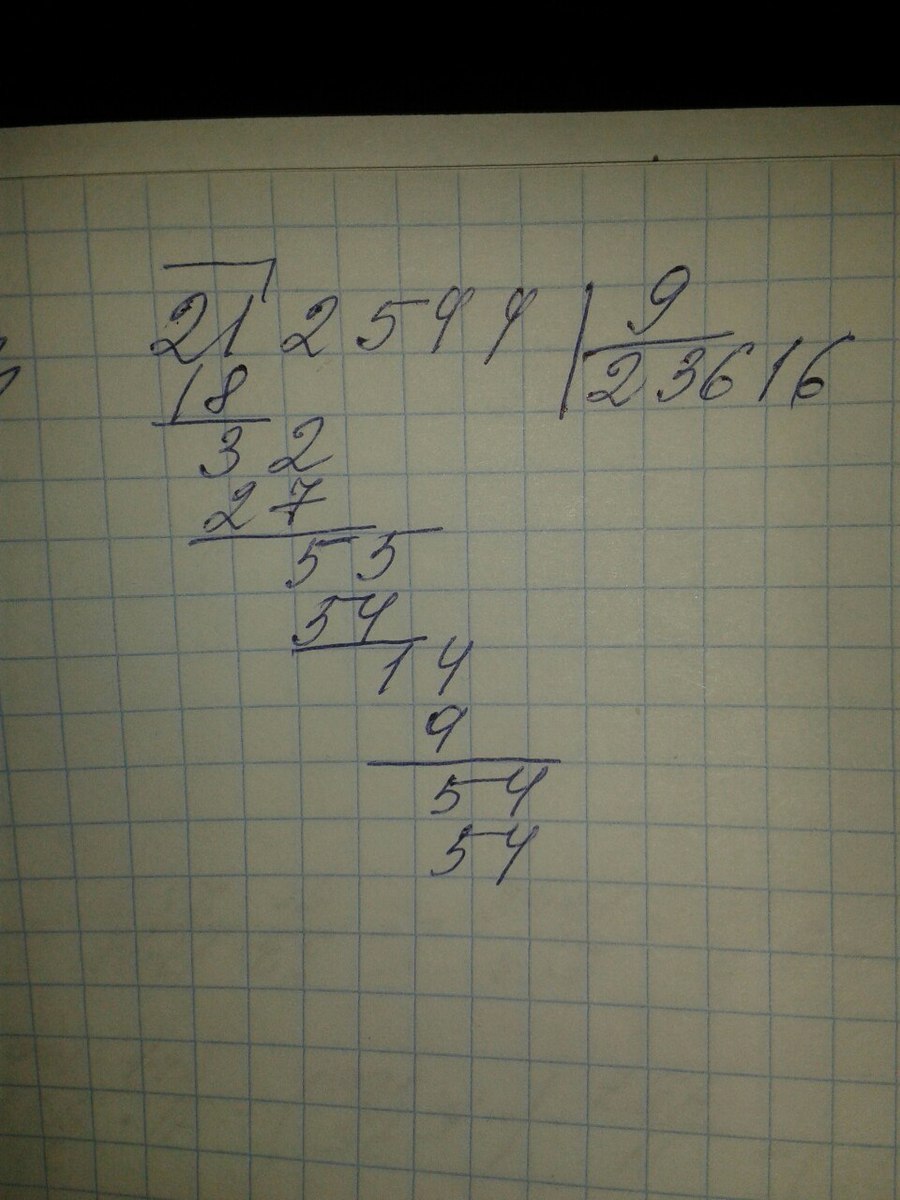 212544 9
18 23616
32
27
55
54
14
9
54
54